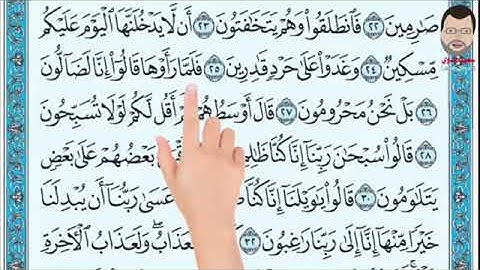 صَـٰرِمِينَ ٢٢ فَٱنطَلَقُوا۟ وَهُمْ يَتَخَـٰفَتُونَ ٢٣ أَن لَّا يَدْخُلَنَّهَا ٱلْيَوْمَ عَلَيْكُم
مِّسْكِينٌ ٢٤ وَغَدَوْا۟ عَلَىٰ حَرْدٍ قَـٰدِرِينَ ٢٥ فَلَمَّا رَأَوْهَا قَالُوٓا۟ إِنَّا لَضَآلُّونَ
٢٦ بَلْ نَحْنُ مَحْرُومُونَ ٢٧ قَالَ أَوْسَطُهُمْ أَقُل لَّكُمْ لَوْلَا تُسَبِّحُونَ
٢٨ قَالُوا۟ سُبْحَـٰنَ رَبِّنَآ إِنَّا كُنَّا بَعْضُهُمْ عَلَىٰ بَعْضٍ
يَتَلَـٰوَمُونَ ٣٠ قَالُوا۟ يَـٰوَيْلَنَآ إِنَّا كُنَّا عَسَىٰ رَبُّنَآ أَن يُبْدِلَنَا
خَيْرًا مِّنْهَآ إِنَّآ إِلَىٰ رَبِّنَا رَٰغِبُونَ ٣٢ وَلَعَذَابُ ٱلْـَٔاخِرَةِ